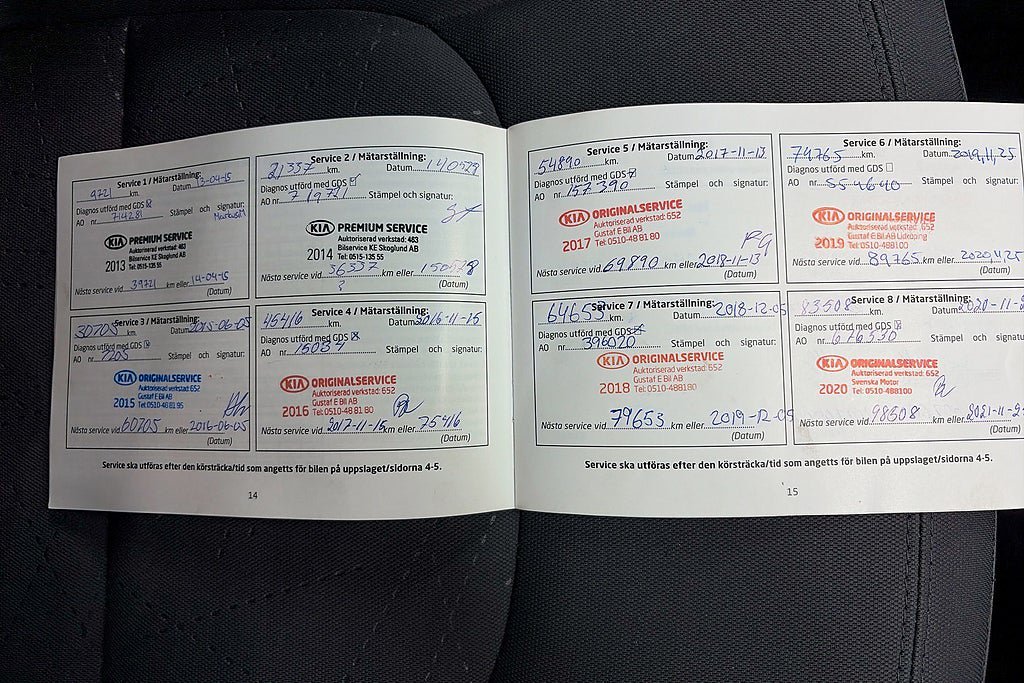 Service 1 / Mätarställning:
9721 km. Datum 13-04-15
Diagnos utförd med GDS
AO nr. 714281 Stämpel och signatur:
KIA PREMIUM SERVICE
Auktoriserad verkstad: 463
Bilservice KE Skoglund AB
2013 Tel: 0515-135 55
Nästa service vid 39721 km eller 14-04-15
(Datum)
Service 2 / Mätarställning:
21337 km. Datum 140528
Diagnos utförd med GDS
AO nr. 719721 Stämpel och signatur:
KIA PREMIUM SERVICE
Auktoriserad verkstad: 463
Bilservice KE Skoglund AB
2014 Tel: 0515-135 55
Nästa service vid 36337 km eller 150528
?
(Datum)
Service 3 / Mätarställning:
30705 km. Datum 2015-06-05
Diagnos utförd med GDS
AO nr. 7205 Stämpel och signatur:
KIA ORIGINALSERVICE
Auktoriserad verkstad: 652
Gustaf E Bil AB
2015 Tel: 0510-48 81 95
Nästa service vid 60705 km eller 2016-06-05
(Datum)
Service 4 / Mätarställning:
45416 km. Datum 2016-11-15
Diagnos utförd med GDS
AO nr. 15084 Stämpel och signatur:
KIA ORIGINALSERVICE
Auktoriserad verkstad: 652
Gustaf E Bil AB
2016 Tel: 0510-48 81 80
Nästa service vid 2017-11-15 km eller 75416
(Datum)
Service ska utföras efter den körsträcka/tid som angetts för bilen på uppslaget/sidorna 4-5.
14
Service 5 / Mätarställning:
54890 km. Datum 2017-11-13
Diagnos utförd med GDS
AO nr. 157390 Stämpel och signatur:
KIA ORIGINALSERVICE
Auktoriserad verkstad: 652
Gustaf E Bil AB
2017 Tel: 0510-48 81 80
Nästa service vid 69890 km eller 2018-11-13
(Datum)
Service 6 / Mätarställning:
74765 km. Datum 2019,11,25
Diagnos utförd med GDS
AO nr. 554640 Stämpel och signatur:
KIA ORIGINALSERVICE
Auktoriserad verkstad: 652
Gustaf E Bil AB Lidköping
2019 Tel: 0510-488100
Nästa service vid 89765 km eller 2020,11,25
(Datum)
Service 7 / Mätarställning:
64653 km. Datum 2018-12-05
Diagnos utförd med GDS
AO nr. 396020 Stämpel och signatur:
KIA ORIGINALSERVICE
Auktoriserad verkstad: 652
Gustaf E Bil AB
2018 Tel: 0510-488180
Nästa service vid 79653 km eller 2019-12-05
(Datum)
Service 8 / Mätarställning:
83508 km. Datum 2020-11-2
Diagnos utförd med GDS
AO nr. 676530 Stämpel och signatur:
KIA ORIGINALSERVICE
Auktoriserad verkstad: 652
Svenska Motor
2020 Tel: 0510-488100
Nästa service vid 98508 km eller 2021-11-23
(Datum)
Service ska utföras efter den körsträcka/tid som angetts för bilen på uppslaget/sidorna 4-5.
15